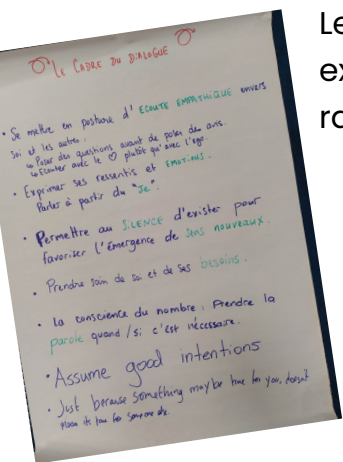 Le Cadre du Dialogue
• Se mettre en posture d'ECOUTE EMPATHIQUE envers
soi et les autres.
↳ Poser des questions avant de poser des avis.
↳ Ecouter avec le ♡ plutôt qu'avec l'ego.
• Exprimer ses ressentis et EMOTIONS.
Parler à partir du "Je".
• Permettre au SILENCE d'exister pour
favoriser l'émergence de sens nouveaux.
• Prendre soin de soi et de ses besoins.
• La conscience du nombre. Prendre la
parole quand/si c'est nécessaire.
• Assume good intentions
• Just because something may be true for you, doesn't
mean its true for someone else.
Le
ex
ra